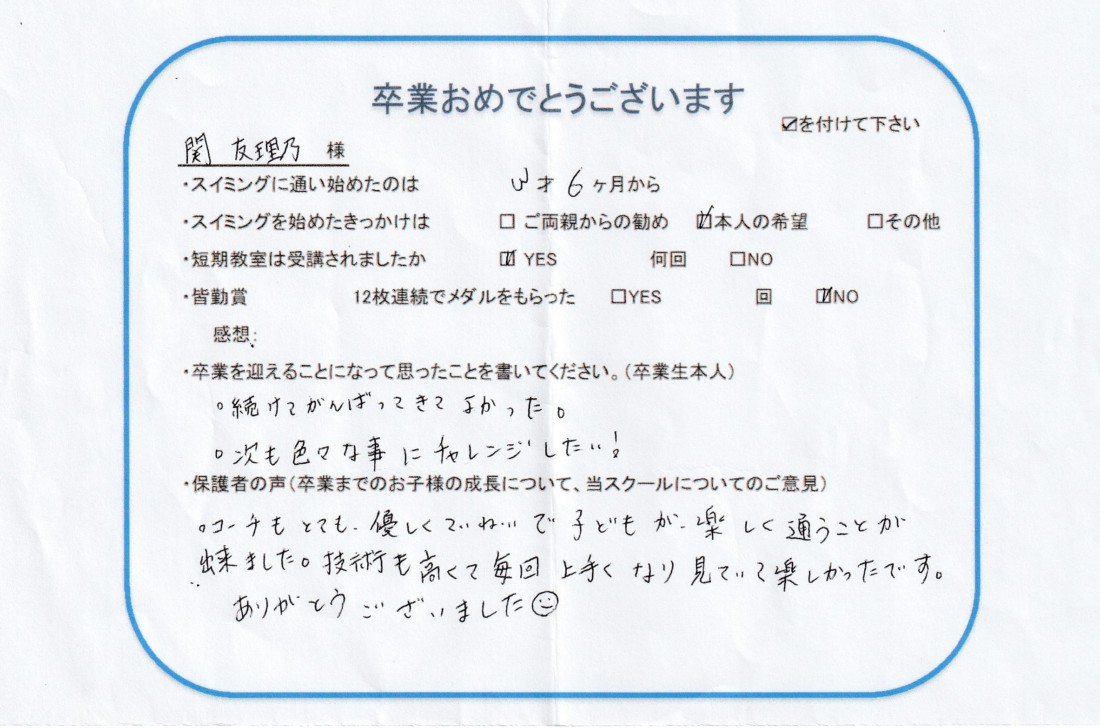 卒業おめでとうございます
☑を付けて下さい
関 友理乃 様
・スイミングに通い始めたのは 3才6ヶ月から
・スイミングを始めたきっかけは □ご両親からの勧め ☑本人の希望 □その他
・短期教室は受講されましたか ☑YES 何回 □NO
・皆勤賞 12枚連続でメダルをもらった □YES 回 ☑NO
感想:
・卒業を迎えることになって思ったことを書いてください。(卒業生本人)
○続けてがんばってきてよかった。
○次も色々な事にチャレンジしたい!
・保護者の声(卒業までのお子様の成長について、当スクールについてのご意見)
○コーチもとても、優しくていねいで子どもが、楽しく通うことが
出来ました。技術も高くて毎回上手くなり見ていて楽しかったです。
ありがとうございました☺